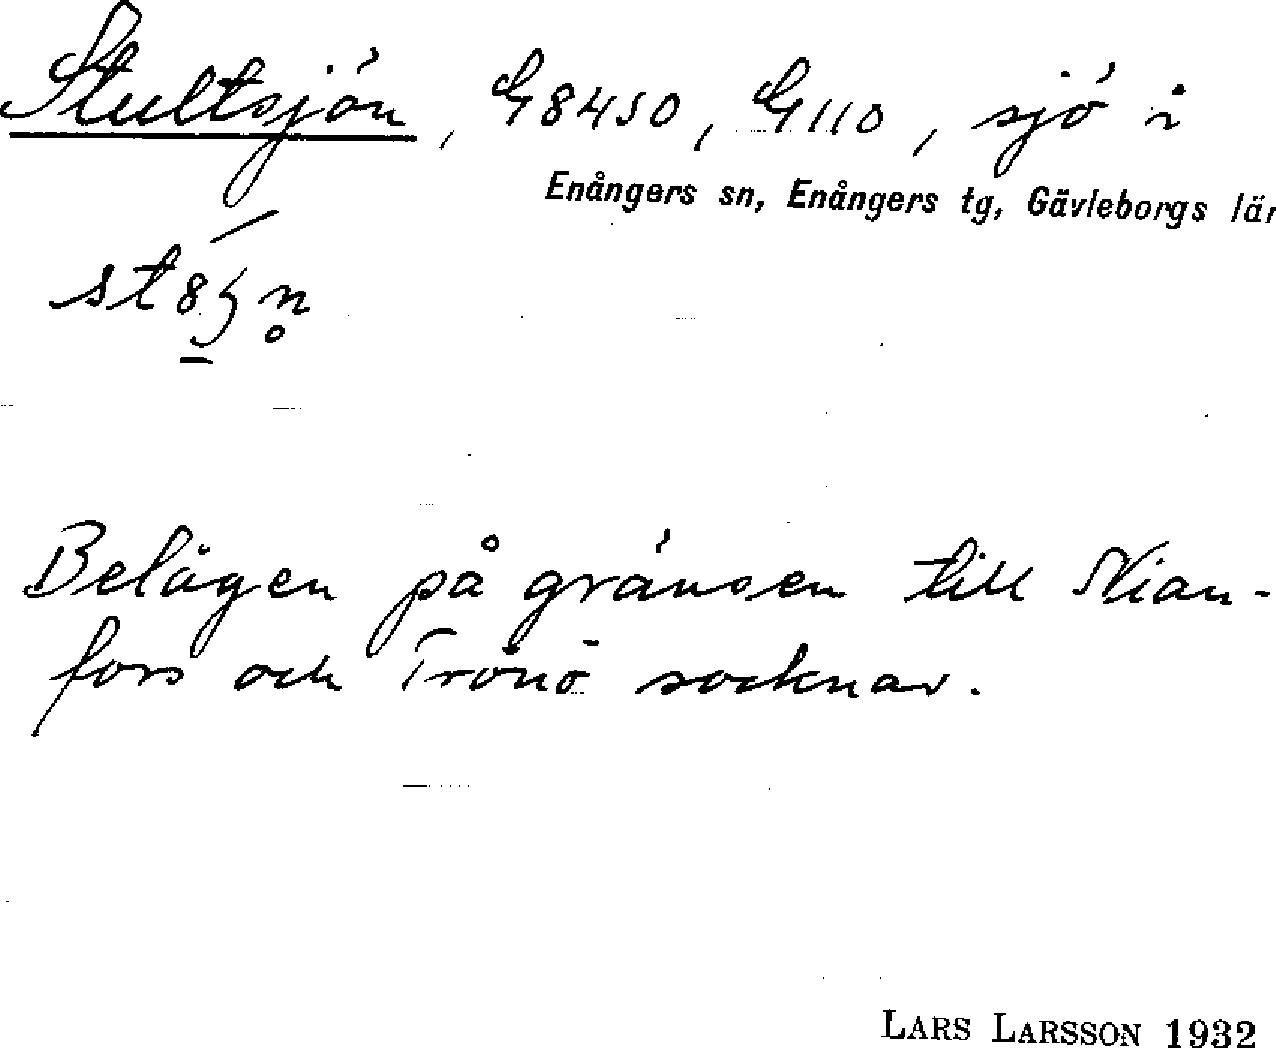 Stultsjön, G8450, G110, sjö i
Enångers sn, Enångers tg, Gävleborgs län
Belägen på gränsen till Nian-
fors och Trönö socknar.
LARS LARSSON 1932